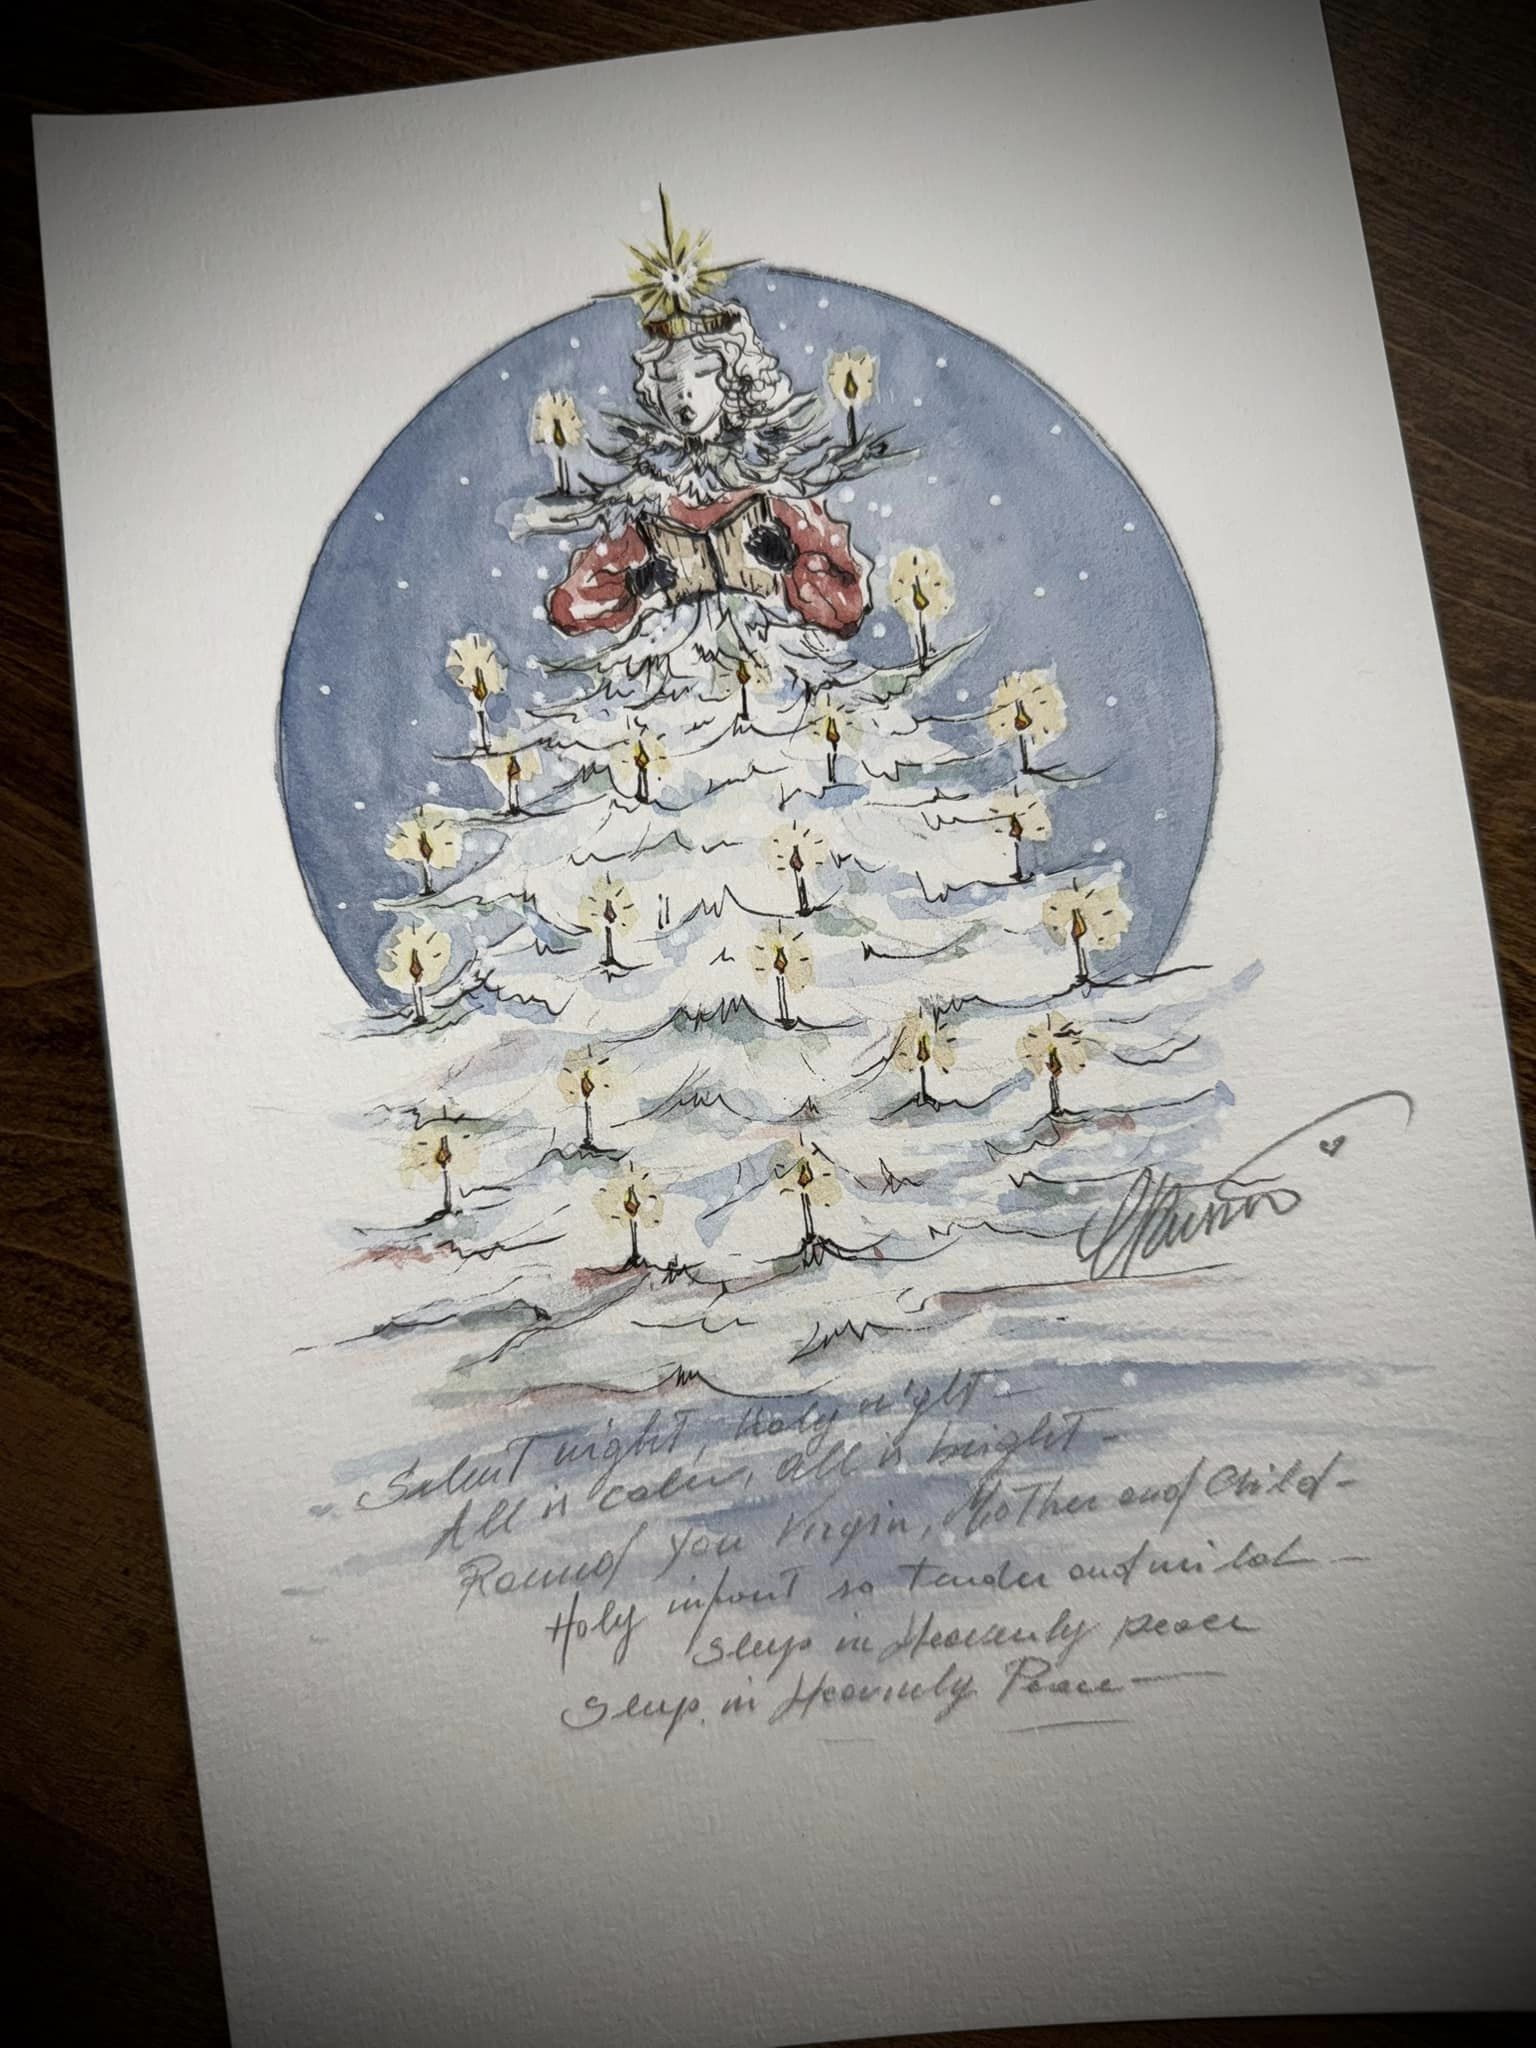 Silent night, Holy night -
All is calm, all is bright -
Round you Virgin, Mother and Child -
Holy infant so tender and mild -
Sleep in Heavenly peace
Sleep in Heavenly Peace -